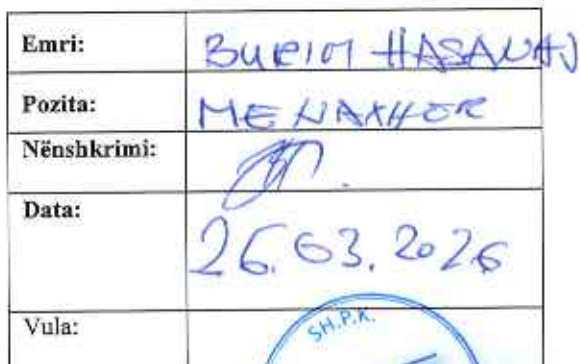 Emri: BURIM HASANAJ
Pozita: MENAXHER
Nënshkrimi:
Data: 26.03.2026
Vula: SH.P.K.